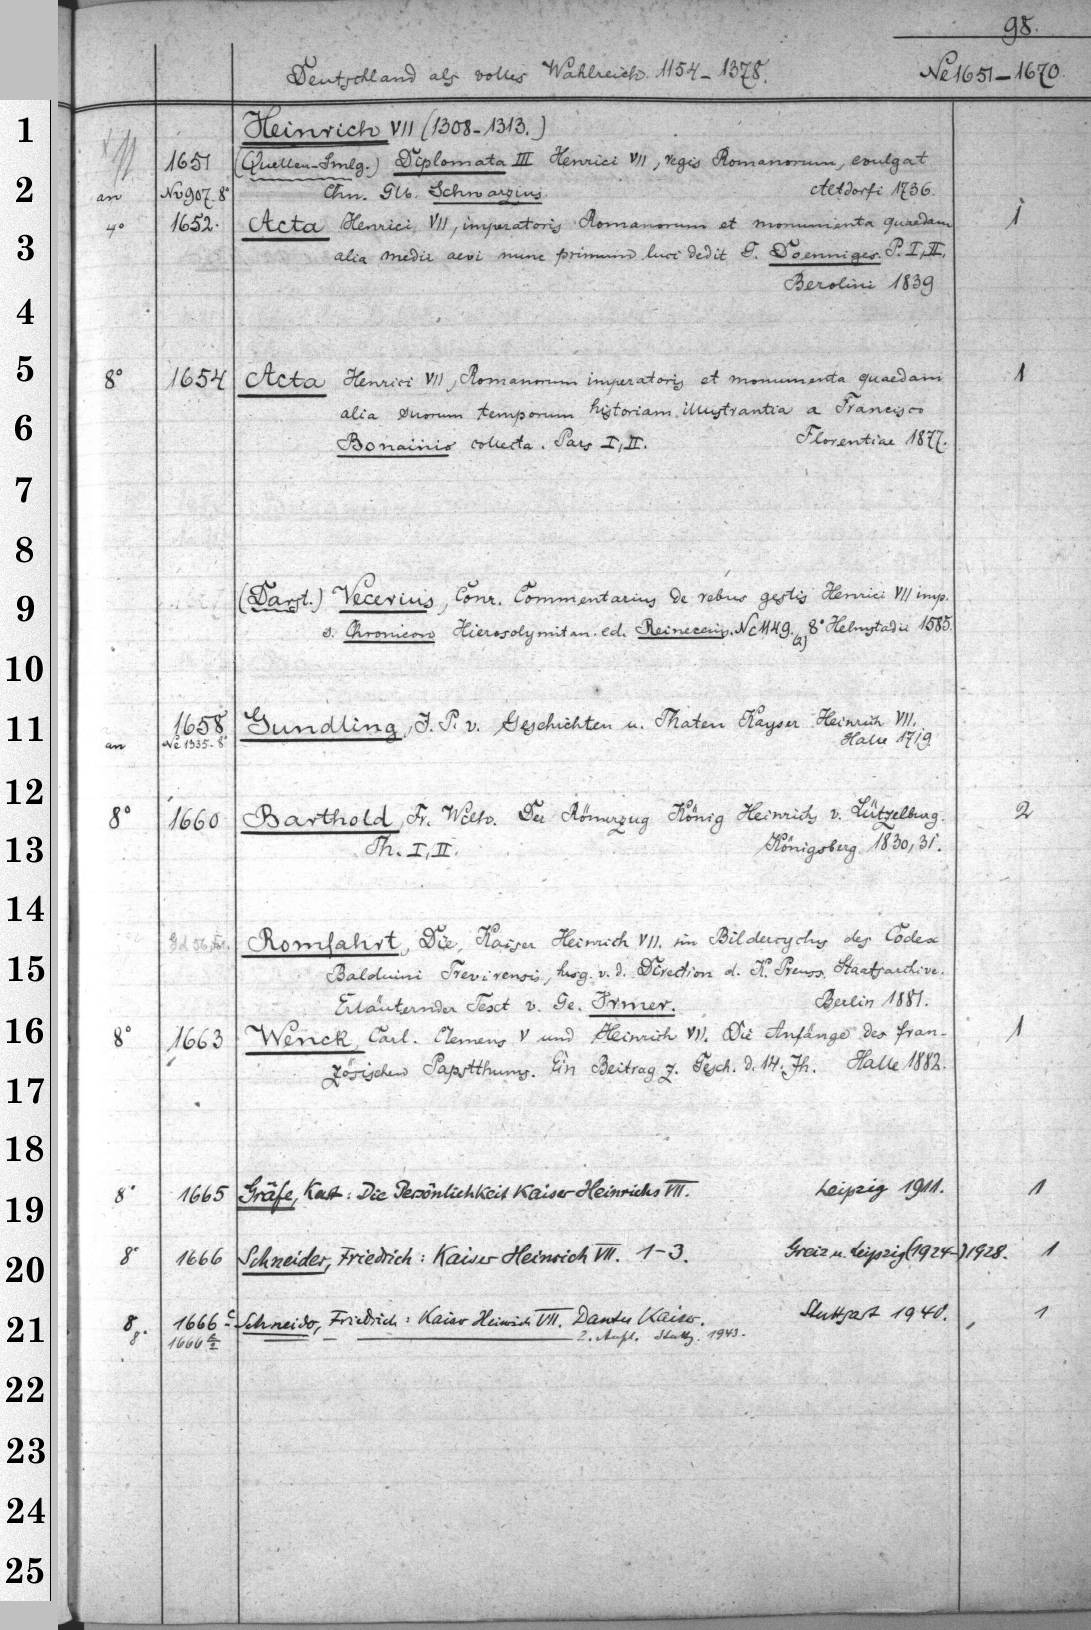 98.
Deutschland als volles Wahlreich. 1154-1378. Ne 1651-1670
1 Heinrich VII (1308-1313.)
1651 (Quellen-Smlg.) Diplomata III Henrici VII, regis Romanorum, evulgat
2 an Nv 907. 8° Chn. Glb. Schwarzius. Altdorfi 1736.
4° 1652. Acta Henrici VII, imperatoris Romanorum et monumenta quaedam 1
3 alia medii aevi nunc primum luci dedit G. Doenniges. P. I, II.
4 Berolini 1839
5 8° 1654 Acta Henrici VII, Romanorum imperatoris et monumenta quaedam 1
6 alia suorum temporum historiam illustrantia a Francisco
Bonainio collecta. Pars I, II. Florentiae 1877.
7
8
9 (Darst.) Vecerius, Conr. Commentarius de rebus gestis Henrici VII imp.
s. Chronicon Hierosolymitan. ed. Reineccius. Nc 1149. (a) 8° Helmstadii 1585.
10
11 1658 Gundling, J. P. v. Geschichten u. Thaten Kayser Heinrich VII.
an Ne 1335. 8° Halle 1719
12 8° 1660 Barthold, Fr. Wilh. Der Römerzug König Heinrichs v. Lützelburg. 2
13 Th. I, II. Königsberg 1830, 31.
14
Romfahrt, Die, Kaiser Heinrich VII. im Bildercyclus des Codex
15 Balduini Trevirensis, hrsg. v. d. Direction d. K. Preuss. Staatsarchive.
Erläuternder Text v. Ge. Irmer. Berlin 1881.
16 8° 1663 Wenck, Carl. Clemens V und Heinrich VII. Die Anfänge des fran- 1
17 zösischen Papstthums. Ein Beitrag z. Gesch. d. 14. Jh. Halle 1882.
18
19 8° 1665 Gräfe, Kurt: Die Persönlichkeit Kaiser Heinrichs VII. Leipzig 1911. 1
20 8° 1666 Schneider, Friedrich: Kaiser Heinrich VII. 1-3. Greiz u. Leipzig (1924-)1928. 1
21 8 1666 c Schneider, Friedrich: Kaiser Heinrich VII. Dantes Kaiser. Stuttgart 1940. 1
8° 1666 2. Aufl. Stuttg. 1943.
22
23
24
25